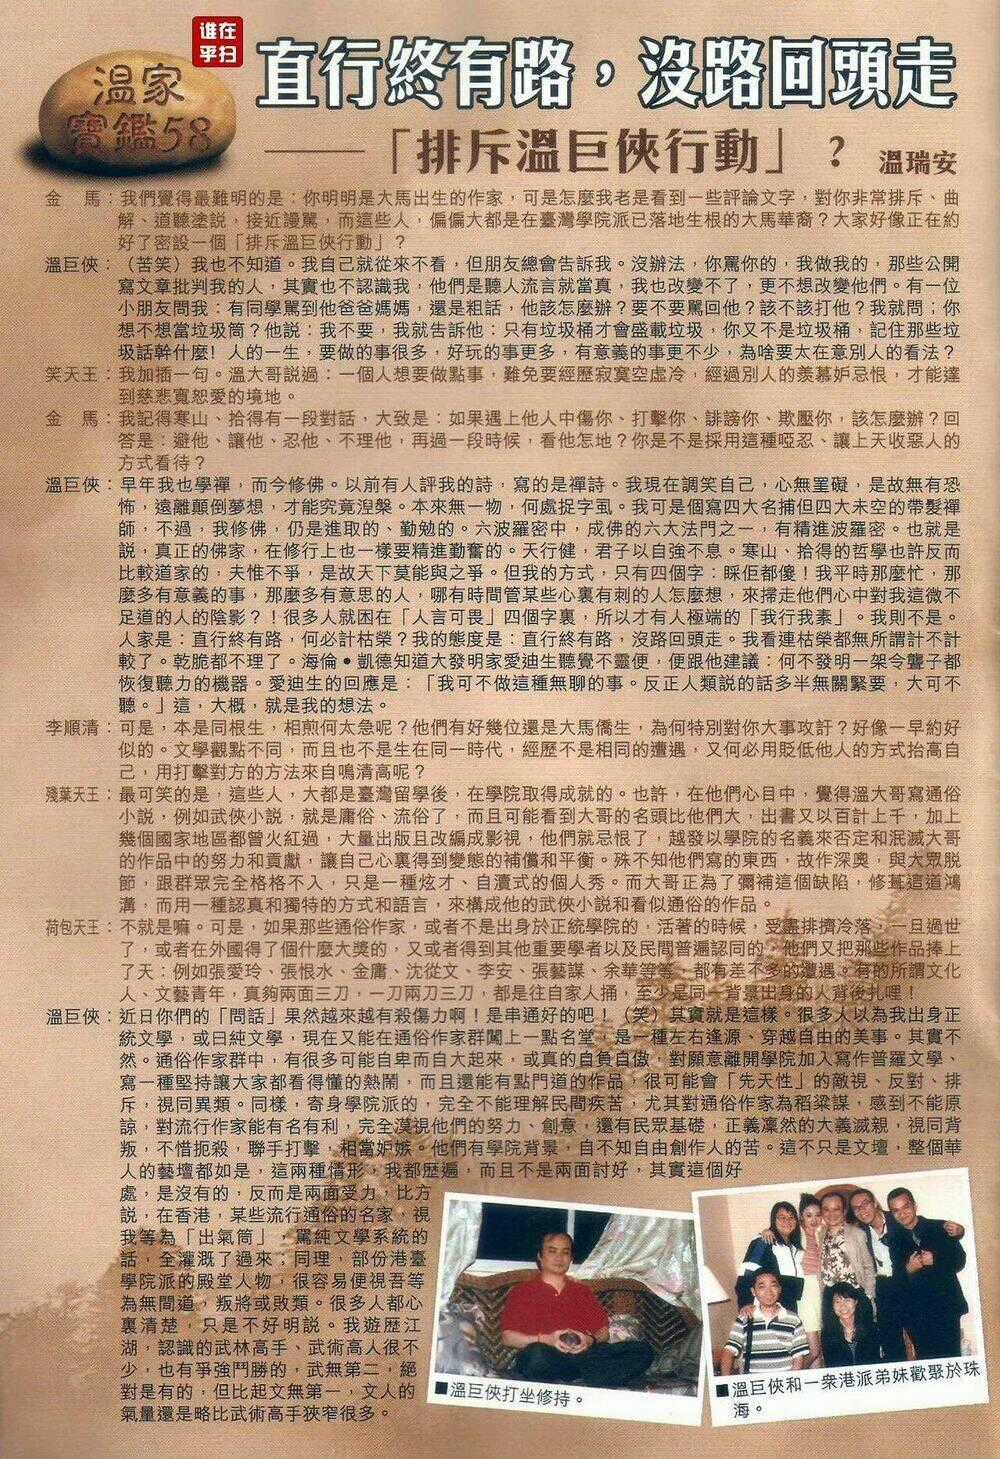 谁在
乎扫
溫家
寶鑑58
直行終有路，沒路回頭走
——「排斥溫巨俠行動」？ 溫瑞安
金　馬：我們覺得最難明的是：你明明是大馬出生的作家，可是怎麼我老是看到一些評論文字，對你非常排斥、曲
解、道聽塗説，接近謾罵，而這些人，偏偏大都是在臺灣學院派已落地生根的大馬華裔？大家好像正在約
好了密設一個「排斥溫巨俠行動」？
溫巨俠：（苦笑）我也不知道。我自己就從來不看，但朋友總會告訴我。沒辦法，你罵你的，我做我的，那些公開
寫文章批判我的人，其實也不認識我，他們是聽人流言就當真，我也改變不了，更不想改變他們。有一位
小朋友問我：有同學罵到他爸爸媽媽，還是粗話，他該怎麼辦？要不要罵回他？該不該打他？我就問；你
想不想當垃圾筒？他説：我不要，我就告訴他：只有垃圾桶才會盛載垃圾，你又不是垃圾桶，記住那些垃
圾話幹什麼！人的一生，要做的事很多，好玩的事更多，有意義的事更不少，為啥要太在意別人的看法？
笑天王：我加插一句。溫大哥説過：一個人想要做點事，難免要經歷寂寞空虛冷，經過別人的羨慕妒忌恨，才能達
到慈悲寬恕愛的境地。
金　馬：我記得寒山、拾得有一段對話，大致是：如果遇上他人中傷你、打擊你、誹謗你、欺壓你，該怎麼辦？回
答是：避他、讓他、忍他、不理他，再過一段時候，看他怎地？你是不是採用這種啞忍、讓上天收惡人的
方式看待？
溫巨俠：早年我也學禪，而今修佛。以前有人評我的詩，寫的是禪詩。我現在調笑自己，心無罣礙，是故無有恐
怖，遠離顛倒夢想，才能究竟涅槃。本來無一物，何處捉字虱。我可是個寫四大名捕但四大未空的帶髮禪
師，不過，我修佛，仍是進取的、勤勉的。六波羅密中，成佛的六大法門之一，有精進波羅密。也就是
説，真正的佛家，在修行上也一樣要精進勤奮的。天行健，君子以自強不息。寒山、拾得的哲學也許反而
比較道家的，夫惟不爭，是故天下莫能與之爭。但我的方式，只有四個字：睬佢都傻！我平時那麼忙，那
麼多有意義的事，那麼多有意思的人，哪有時間管某些心裏有刺的人怎麼想，來掃走他們心中對我這微不
足道的人的陰影？！很多人就困在「人言可畏」四個字裏，所以才有人極端的「我行我素」。我則不是。
人家是：直行終有路，何必計枯榮？我的態度是：直行終有路，沒路回頭走。我看連枯榮都無所謂計不計
較了。乾脆都不理了。海倫•凱德知道大發明家愛迪生聽覺不靈便，便跟他建議：何不發明一架令聾子都
恢復聽力的機器。愛迪生的回應是：「我可不做這種無聊的事。反正人類説的話多半無關緊要，大可不
聽。」這，大概，就是我的想法。
李順清：可是，本是同根生，相煎何太急呢？他們有好幾位還是大馬僑生，為何特別對你大事攻訐？好像一早約好
似的。文學觀點不同，而且也不是生在同一時代，經歷不是相同的遭遇，又何必用貶低他人的方式抬高自
己，用打擊對方的方法來自鳴清高呢？
殘葉天王：最可笑的是，這些人，大都是臺灣留學後，在學院取得成就的。也許，在他們心目中，覺得溫大哥寫通俗
小説，例如武俠小説，就是庸俗、流俗了，而且可能看到大哥的名頭比他們大，出書又以百計上千，加上
幾個國家地區都曾火紅過，大量出版且改編成影視，他們就忌恨了，越發以學院的名義來否定和泯滅大哥
的作品中的努力和貢獻，讓自己心裏得到變態的補償和平衡。殊不知他們寫的東西，故作深奧，與大眾脱
節，跟群眾完全格格不入，只是一種炫才、自瀆式的個人秀。而大哥正為了彌補這個缺陷，修葺這道鴻
溝，而用一種認真和獨特的方式和語言，來構成他的武俠小説和看似通俗的作品。
荷包天王：不就是嘛。可是，如果那些通俗作家，或者不是出身於正統學院的，活著的時候，受盡排擠冷落，一旦過世
了，或者在外國得了個什麼大獎的，又或者得到其他重要學者以及民間普遍認同的，他們又把那些作品捧上
了天：例如張愛玲、張恨水、金庸、沈從文、李安、張藝謀、余華等等，都有差不多的遭遇，有的所謂文化
人、文藝青年，真夠兩面三刀，一刀兩刀三刀，都是往自家人捅，至少是同一背景出身的人背後扎哩！
溫巨俠：近日你們的「問話」果然越來越有殺傷力啊！是串通好的吧！（笑）其實就是這樣。很多人以為我出身正
統文學，或曰純文學，現在又能在通俗作家群闖上一點名堂，是一種左右逢源、穿越自由的美事。其實不
然。通俗作家群中，有很多可能自卑而自大起來，或真的自負自傲，對願意離開學院加入寫作普羅文學、
寫一種堅持讓大家都看得懂的熱鬧，而且還能有點門道的作品，很可能會「先天性」的敵視、反對、排
斥，視同異類。同樣，寄身學院派的，完全不能理解民間疾苦，尤其對通俗作家為稻粱謀，感到不能原
諒，對流行作家能有名有利，完全漠視他們的努力、創意，還有民眾基礎，正義凜然的大義滅親，視同背
叛，不惜扼殺，聯手打擊，相當妒嫉，他們有學院背景，自不知自由創作人的苦。這不只是文壇，整個華
人的藝壇都如是，這兩種情形，我都歷遍，而且不是兩面討好，其實這個好
處，是沒有的，反而是兩面受力，比方
説，在香港，某些流行通俗的名家，視
我等為「出氣筒」，罵純文學系統的
話，全灌溉了過來；同理，部份港臺
學院派的殿堂人物，很容易便視吾等
為無間道，叛將或敗類。很多人都心
裏清楚，只是不好明説。我遊歷江
湖，認識的武林高手、武術高人很不
少，也有爭強鬥勝的，武無第二，絕
對是有的，但比起文無第一，文人的
氣量還是略比武術高手狹窄很多。
■溫巨俠打坐修持。
■溫巨俠和一衆港派弟妹歡聚於珠
海。